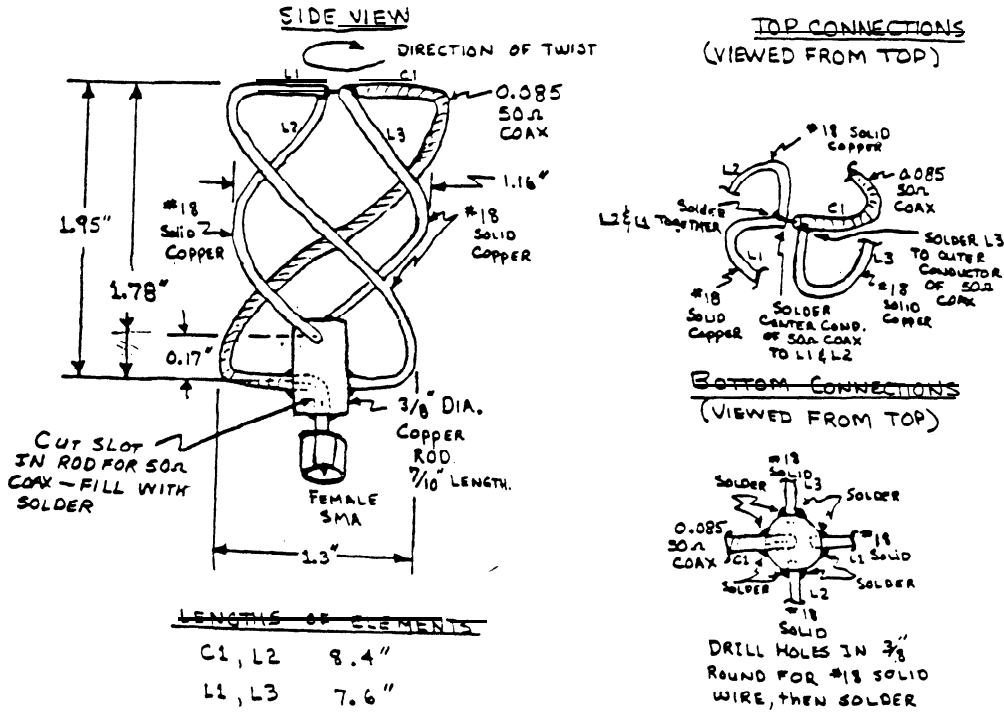 SIDE VIEW
DIRECTION OF TWIST
L1
C1
L2
L3
0.085
50Ω
COAX
1.16"
#18
Solid
COPPER
#18
SOLID
COPPER
1.95"
1.78"
0.17"
CUT SLOT
IN ROD FOR 50Ω
COAX – FILL WITH
SOLDER
3/8" DIA.
COPPER
ROD
7/10" LENGTH.
FEMALE
SMA
1.3"
LENGTHS OF ELEMENTS
C1, L2 8.4"
L1, L3 7.6"
TOP CONNECTIONS
(VIEWED FROM TOP)
#18 SOLID
COPPER
L2
0.085
50Ω
COAX
C1
SOLDER
L2 & L1 TOGETHER
L1
L3
SOLDER L3
TO OUTER
CONDUCTOR
OF 50Ω
COAX
#18
SOLID
COPPER
#18
SOLID
COPPER
SOLDER
CENTER COND.
OF 50Ω COAX
TO L1 & L2
BOTTOM CONNECTIONS
(VIEWED FROM TOP)
#18
SOLID
L3
SOLDER
SOLDER
0.085
50Ω
COAX
C1
#18
L1 SOLID
SOLDER
SOLDER
L2
#18
SOLID
DRILL HOLES IN 3/8"
ROUND FOR #18 SOLID
WIRE, then SOLDER